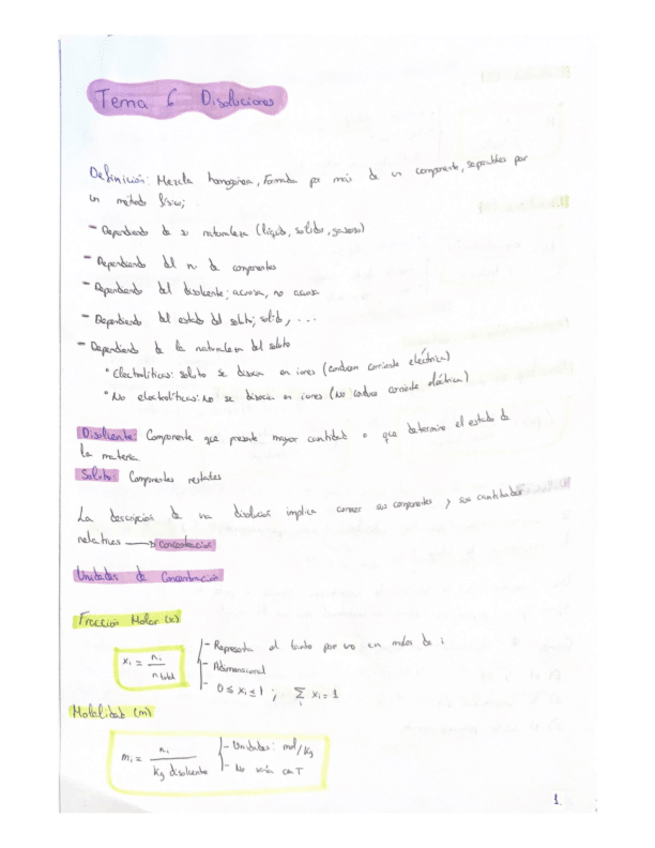 Tema 6 Disoluciones
Definición: Mezcla homogénea, formada por más de un componente, separables por
un método físico;
- Dependiendo de su naturaleza (líquido, solido, gaseoso)
- Dependiendo del nº de componentes
- Dependiendo del disolvente; acuosa, no acuosa
- Dependiendo del estado del soluto; solido, ...
- Dependiendo de la naturaleza del soluto
• Electrolíticas: soluto se disocia en iones (conducen corriente eléctrica)
• No electrolíticas: No se disocia en iones (No conduce corriente eléctrica)
Disolvente: Componente que presente mayor cantidad o que determine el estado de
la materia.
Soluto: Componentes restantes
La descripción de una disolución implica conocer sus componentes y sus cantidades
relativas → Concentración
Unidades de Concentración
Fracción Molar (x)
xi = ni / n total
- Representa el tanto por uno en moles de i
- Adimensional
- 0 ≤ xi ≤ 1 ; Σi xi = 1
Molalidad (m)
mi = ni / Kg disolvente
- Unidades: mol/Kg
- No varía con T
1